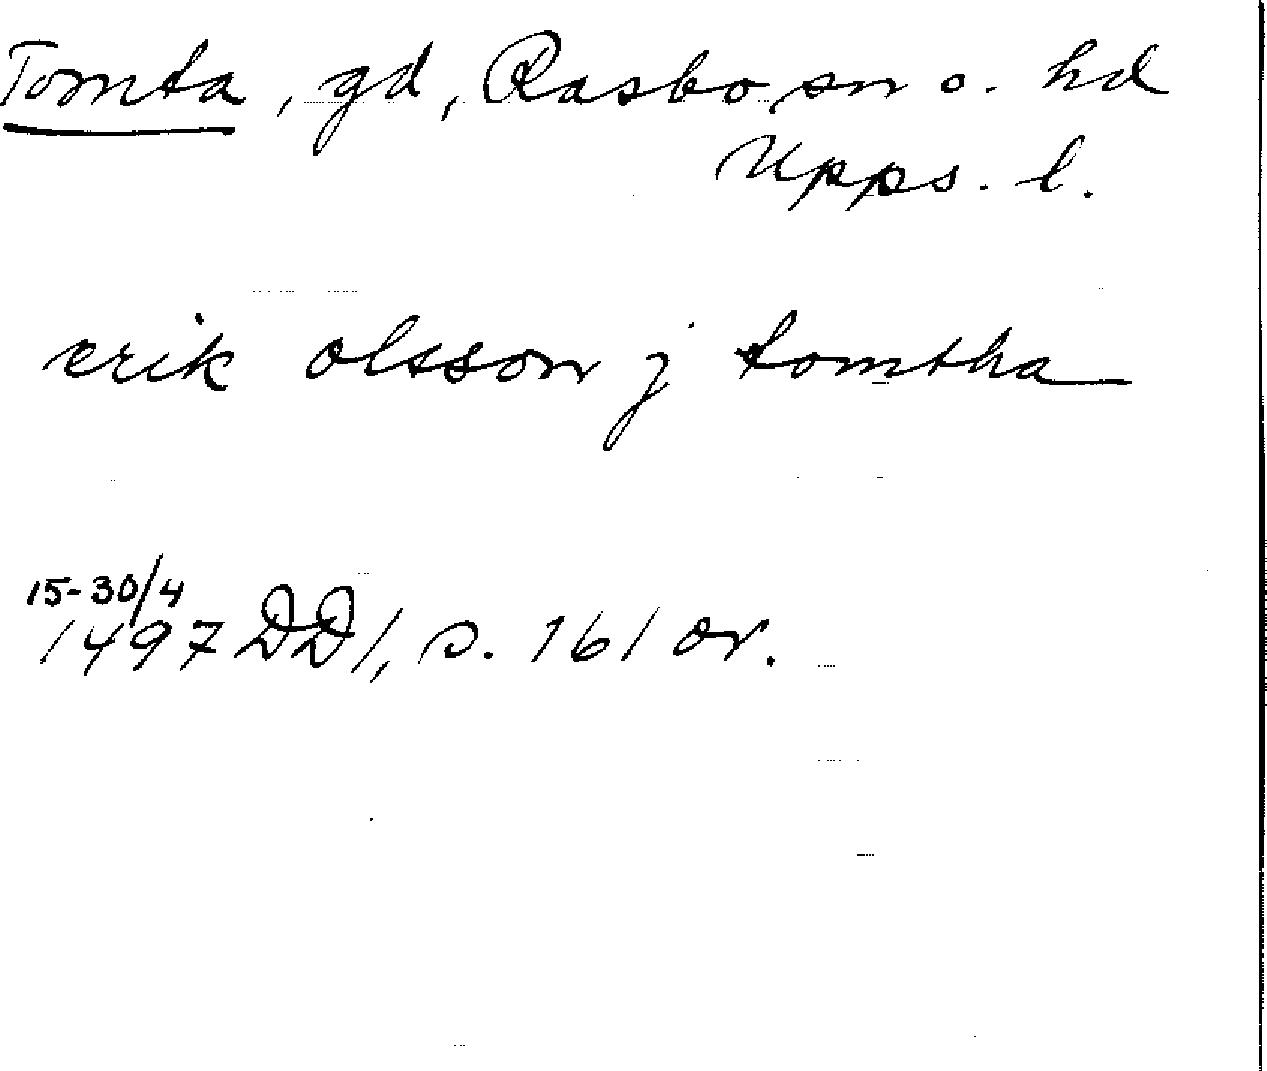 Tomta, gd, Rasbo sn o. hd
Upps. l.
erik olsson j tomtha
15-30/4
1497 DD1, s. 161 or.